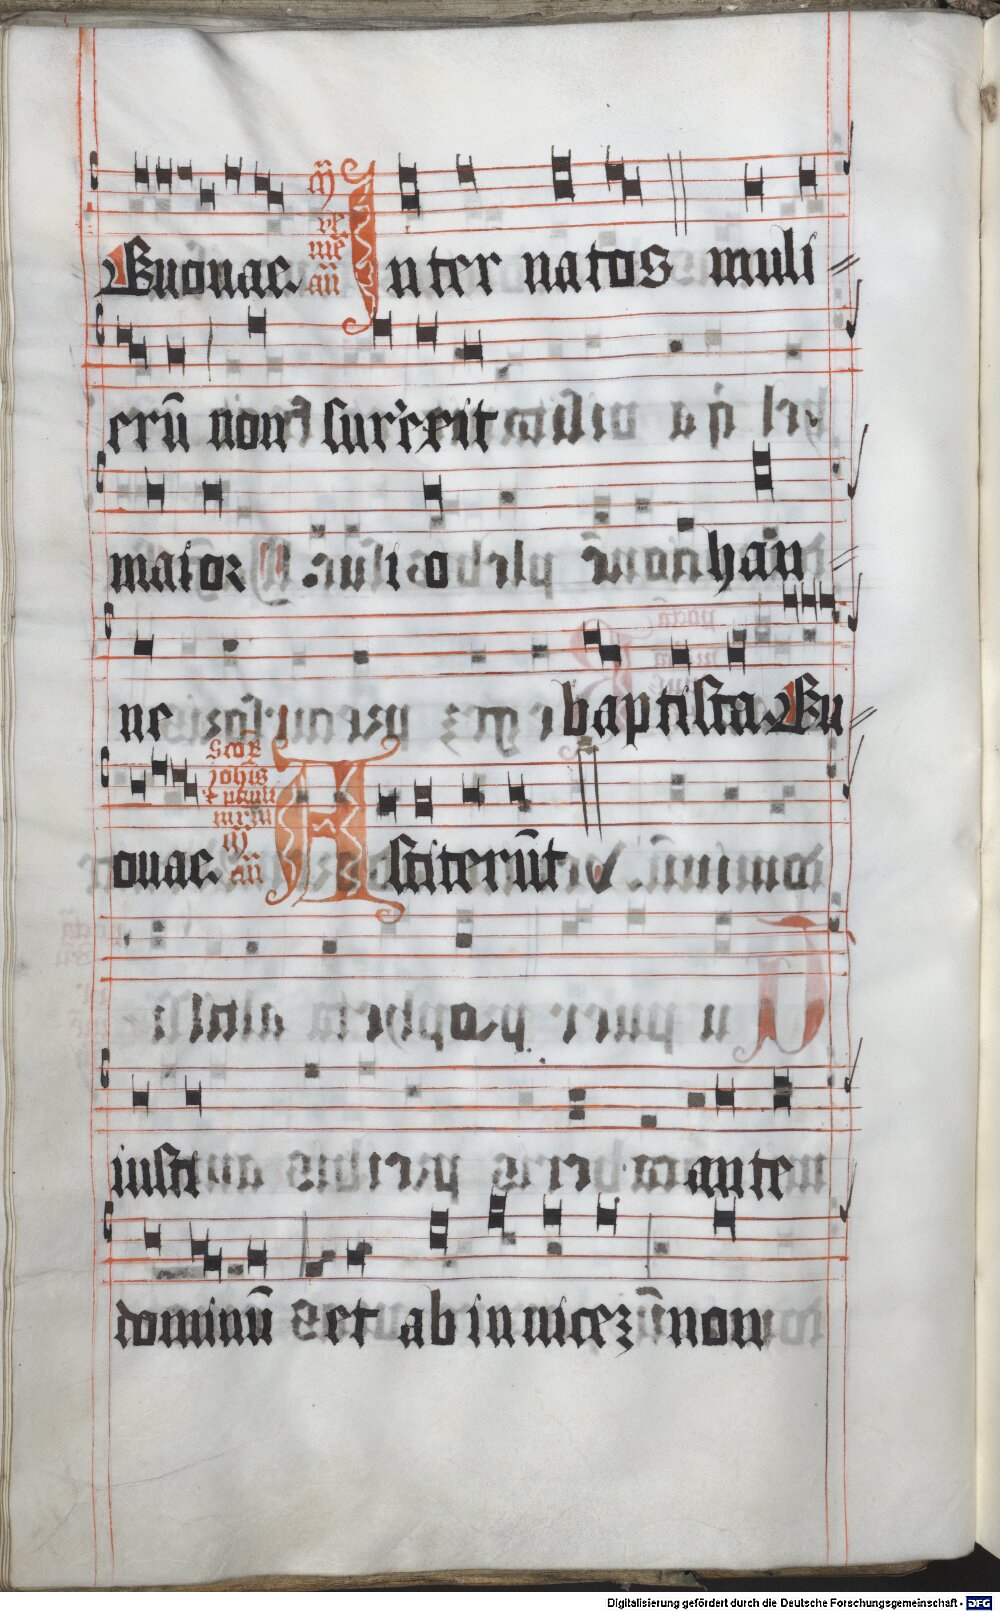 Euouae. In ve me añ Inter natos muli
erū non surrexit
maior io han
ne baptista Eu
ouae. Scōꝝ Johis ⁊ pauli mr̄m añ Astiterūt
iusti ante
dominū et ab inuicez nōn
Digitalisierung gefördert durch die Deutsche Forschungsgemeinschaft - DFG